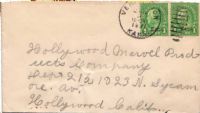 Hollywood Marvel Prod
ucts Company
Dept 212 1923 N. Sycam
ore. Av.
Hollywood Calif.